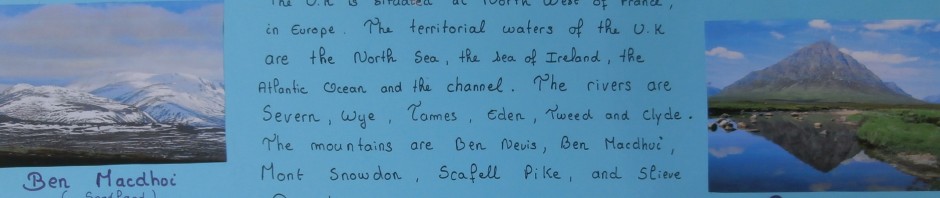 The U.K is situated at North West of France,
in Europe. The territorial waters of the U.K
are the North Sea, the sea of Ireland, the
Atlantic Ocean and the channel. The rivers are
Severn, Wye, Tames, Eden, Tweed and Clyde.
The mountains are Ben Nevis, Ben Macdhui,
Mont Snowdon, Scafell Pike, and Slieve
Ben Macdhoi